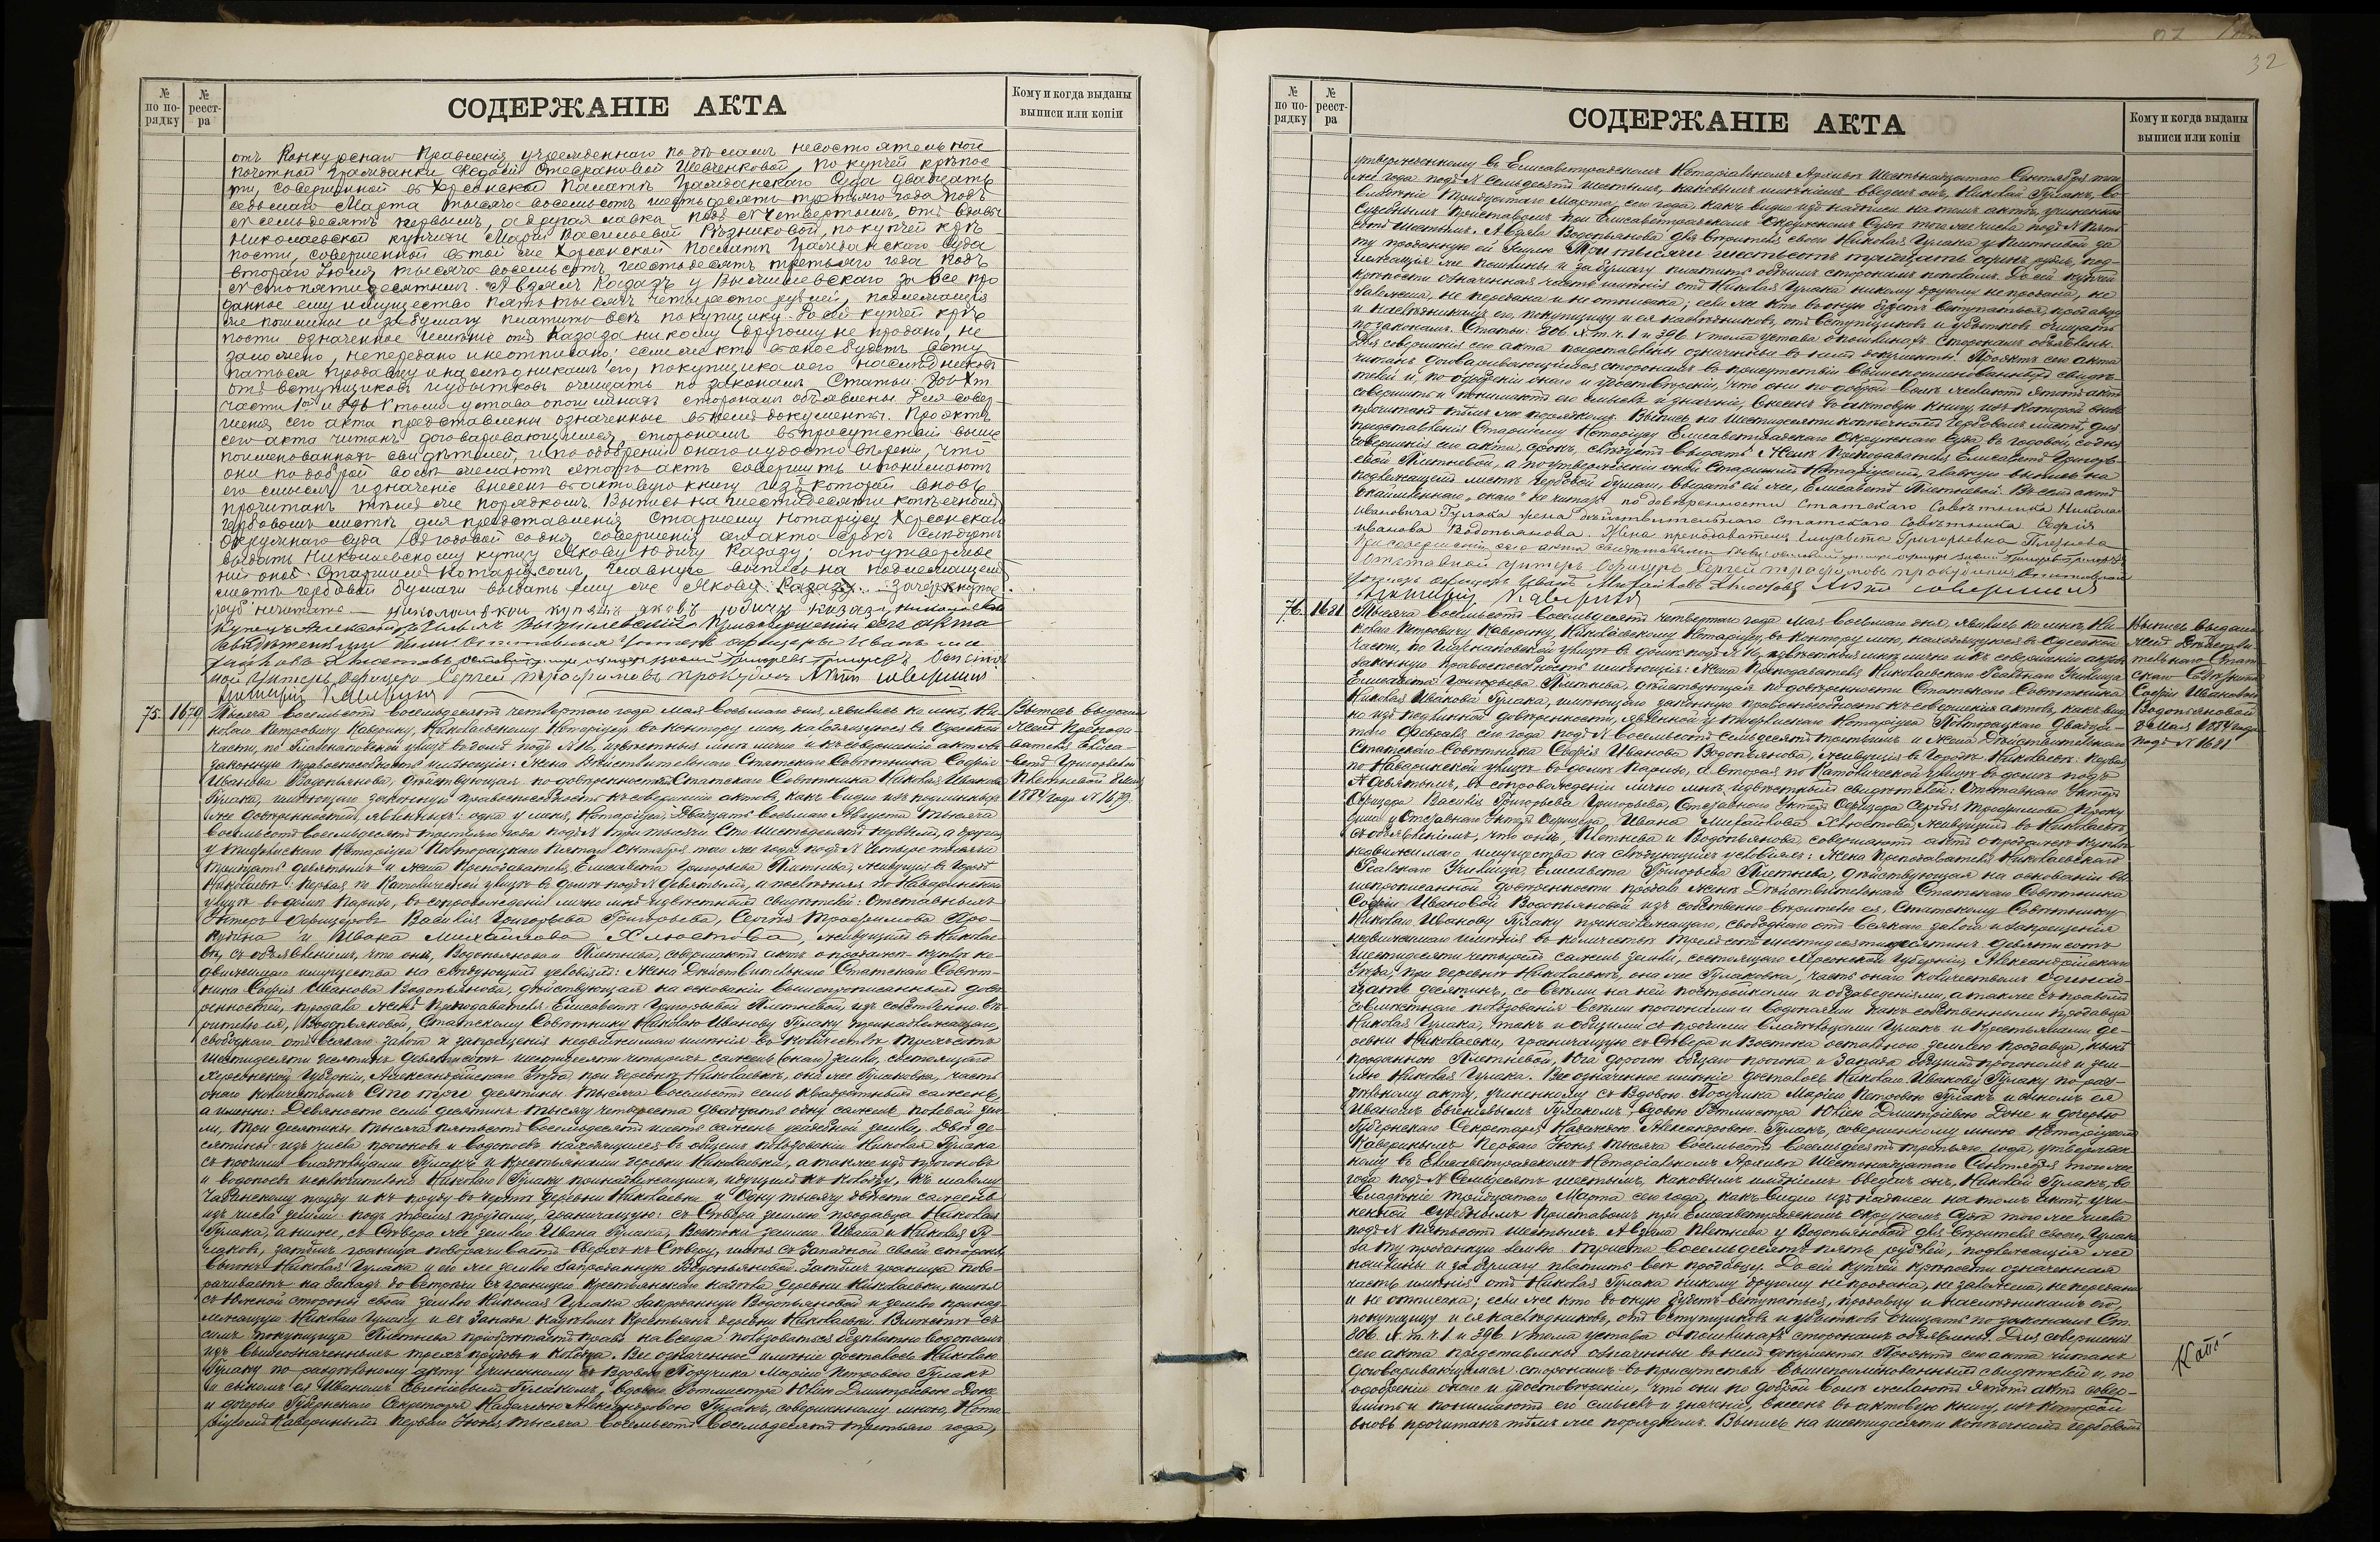 32
№ по по-рядку
№ реест-ра
СОДЕРЖАНІЕ АКТА
Кому и когда выданы выписи или копіи
отъ Конкурснаго Правленія учрежденнаго по дѣламъ несостоятельной
почетной гражданки Федосіи Шевченковой, по купчей крѣпос
ти, совершенной въ Херсонской Палатѣ Гражданскаго Суда двадцать
седьмаго Марта тысяча восемьсотъ шестьдесятъ третьяго года подъ
№ семьдесятъ первымъ, а другая лавка подъ № четвертымъ, отъ вдовы
Николаевской купчихи Маріи Васильевой Рѣзниковой, по купчей крѣ
пости, совершенной въ той же Херсонской Палатѣ Гражданскаго Суда
втораго Іюля тысяча восемьсотъ шестьдесятъ третьяго года подъ
№ сто пятидесятымъ. А взялъ Казазъ у Вычилевскаго за все про
данное ему имущество пять тысячъ четыреста рублей, подлежащія
же пошлины и за бумагу платить всѣ покупщику. До сей купчей крѣ
пости означенное имѣніе отъ Казаза никому другому не продано, не
заложено, не передано и не отписано; если же кто въ оное будетъ всту
паться продавцу и наслѣдникамъ его, покупщика и его наслѣдниковъ
отъ вступщиковъ и убытковъ очищать по законамъ. Статьи: 206 Хт.
части 1ой и 396 V тома устава о пошлинахъ сторонамъ объявлены. Для совер
шенія сего акта представлены означенные въ немъ документы. Проэктъ
сего акта читанъ договаривающимся сторонамъ въ присутствіи выше
поименованныхъ свидѣтелей, и по одобреніи онаго и удостовѣреніи, что
они по доброй волѣ желаютъ этотъ актъ совершить и понимаютъ
его смыслъ и значеніе внесенъ въ актовую книгу изъ которой вновь
прочитанъ тѣмъ же порядкомъ. Выпись на шестидесяти копѣечномъ
гербовомъ листѣ для представленія Старшему Нотаріусу Херсонскаго
Окружнаго Суда въ годовой со дня совершенія сего акта срокъ слѣдуетъ
выдать Николаевскому купцу Якову Юдичу Казазу; а по утвержде
ніи оной Старшимъ Нотаріусомъ, главную выпись на подлежащемъ
листѣ гербовой бумаги выдать ему же Якову Казазу. Зачеркнутое
не читать. Николаевскій купецъ Яковъ Юдичъ Казазъ, Николаевскій
Купецъ Александръ Вычилевскій При совершеніи сего акта
свидѣтелями были: Отставные Унтеръ офицеры Иванъ Ми
хайловъ Хлюстовъ отставной унтеръ офицеръ Василій Григорьевъ Григорьевъ Отстав
ной Унтеръ офицеръ Сергѣй Трофимовъ Прокудинъ Актъ совершилъ
Нотаріусъ Каверинъ
75. 1679
Тысяча восемьсотъ восемьдесятъ четвертаго года Мая восьмаго дня, явились ко мнѣ, Ни-
колаю Петровичу Каверину, Николаевскому Нотаріусу, въ контору мою, находящуюся въ Одесской
части, по Глазенаповской улицѣ въ домѣ подъ № 16, извѣстныя мнѣ лично и къ совершенію актовъ
законную правоспособность имѣющія: Жена Дѣйствительнаго Статскаго Совѣтника Софія
Иванова Водопьянова, дѣйствующая по довѣренностямъ Статскаго Совѣтника Николая Иванова
Гулака, имѣющаго законную правоспособность къ совершенію актовъ, какъ видно изъ подлинныхъ
же довѣренностей, явленныхъ: одна у меня, Нотаріуса, двадцать восьмаго Августа тысяча
восемьсотъ восемьдесятъ третьяго года подъ № три тысячи сто шестьдесятъ первымъ, а другая
у Тифлисскаго Нотаріуса Повторацкаго пятаго Октября того же года подъ № четыре тысячи
тридцать девятымъ и жена Преподавателя Елисавета Григорьева Плетнева, живущія въ городѣ
Николаевѣ: первая по Католической улицѣ въ домѣ подъ № девятымъ, а послѣдняя по Наваринской
улицѣ въ домѣ Паризо, въ сопровожденіи лично мнѣ извѣстныхъ свидѣтелей: Отставныхъ
Унтеръ Офицеровъ Василія Григорьева Григорьева, Сергѣя Трофимова Про-
кудина и Ивана Михайлова Хлюстова, живущихъ въ Николае-
вѣ, съ объявленіемъ, что они, Водопьянова и Плетнева, совершаютъ актъ о продажѣ купли не-
движимаго имущества на слѣдующихъ условіяхъ: Жена Дѣйствительнаго Статскаго Совѣт-
ника Софія Иванова Водопьянова, дѣйствующая на основаніи вышепрописанныхъ довѣ
ренностей, продала женѣ Преподавателя Елисаветѣ Григорьевой Плетневой, изъ собственно вѣ
рителю ея, Водопьяновой, Статскому Совѣтнику Николаю Иванову Гулаку принадлежащаго,
свободнаго отъ всякаго залога и запрещенія недвижимаго имѣнія въ количествѣ трехсотъ
шестидесяти десятинъ девятисотъ шестидесяти четырехъ сажень (онаго) земли, состоящаго
Херсонской Губерніи, Александрійскаго Уѣзда при деревнѣ Николаевкѣ, она же Гулаковка, часть
онаго количествомъ Сто три десятины тысяча восемьсотъ семь квадратныхъ сажень,
а именно: Девяносто семь десятинъ тысячу четыреста двадцать одну сажень полевой зем-
ли, три десятины тысяча пятьсотъ восемьдесятъ шесть сажень усадебной земли, двѣ де-
сятины изъ числа прогоновъ и водопоевъ находящихся въ общемъ пользованіи Николая Гулака
съ прочими владѣльцами Гулакъ и крестьянами деревни Николаевки, а также изъ прогоновъ
и водопоевъ исключительно Николаю Гулаку принадлежащихъ, идущихъ къ колодцу, къ малому
Чабанскому пруду и къ пруду въ чертѣ деревни Николаевки и одну тысячу двѣсти сажень
изъ числа земли подъ тремя прудами, граничащую: съ Сѣвера землею продавца Николая
Гулака, а ниже, съ Сѣвера же землею Ивана Гулака, Востока землею Ивана и Николая Гу-
лаковъ, затѣмъ граница поворачиваетъ вверхъ къ Сѣверу, имѣя съ Западной своей стороны
выгонъ Николая Гулака и его же землю запроданную Водопьяновой. Затѣмъ граница пово-
рачиваетъ на Западъ до встрѣчи съ границею крестьянскаго надѣла деревни Николаевки, имѣя
съ Южной стороны своей землю Николая Гулака запроданную Водопьяновой и землю принад-
лежащую Николаю Гулаку и съ Запада надѣломъ крестьянъ деревни Николаевки. Вмѣстѣ съ
симъ покупщица Плетнева пріобрѣтаетъ право навсегда пользоваться безплатно водопоемъ
изъ вышеозначенныхъ трехъ прудовъ и колодца. Все означенное имѣніе досталось Николаю
Гулаку по раздѣльному акту учиненному съ вдовою Поручика Маріею Петровою Гулакъ
и сыномъ ея Иваномъ Евгеніевымъ Гулакомъ, вдовою Ротмистра Юліею Дмитріевою Доне
и дочерью Губернскаго Секретаря Надеждою Александровою Гулакъ, совершенному мною, Нота
ріусомъ Каверинымъ перваго Іюня тысяча восемьсотъ восемьдесятъ третьяго года,
Выпись выдана
женѣ Препода-
вателя Елиса-
ветѣ Григорьевой
Плетневой 8 Мая
1884 года № 1679.
№ по по-рядку
№ реест-ра
СОДЕРЖАНІЕ АКТА
Кому и когда выданы выписи или копіи
утвержденному въ Елисаветградскомъ Нотаріальномъ Архивѣ Шестнадцатаго Сентября того
же года подъ № Семьдесятъ шестымъ, каковымъ имѣніемъ введенъ онъ, Николай Гулакъ, во
владѣніе тридцатаго Марта сего года, какъ видно изъ надписи на томъ актѣ, учиненной
Судебнымъ Приставомъ при Елисаветградскомъ Окружномъ Судѣ того же числа подъ № пять
сотъ шестымъ. А взяла Водопьянова для вѣрителя своего Николая Гулака у Плетневой за
ту проданную ей землю Три тысячи шестьсотъ тридцать одинъ рубль, под-
лежащія же пошлины и за бумагу платить обѣимъ сторонамъ пополамъ. До сей купчей
крѣпости означенная часть имѣнія отъ Николая Гулака никому другому не продана, не
заложена, не передана и не отписана; если же кто въ оную будетъ вступаться, продавцу
и наслѣдникамъ его, покупщицу и ея наслѣдниковъ, отъ вступщиковъ и убытковъ очищать
по законамъ. Статьи: 206 Х т. ч. 1 и 396 V тома устава о пошлинахъ сторонамъ объявлены.
Для совершенія сего акта представлены означенные въ немъ документы. Проэктъ сего акта
читанъ договаривающимся сторонамъ въ присутствіи вышепоименованныхъ свидѣ-
телей и, по одобреніи онаго и удостовѣреніи, что они по доброй волѣ желаютъ этотъ актъ
совершить и понимаютъ его смыслъ и значеніе, внесенъ въ актовую книгу, изъ которой вновь
прочитанъ тѣмъ же порядкомъ. Выпись на шестидесяти копѣечномъ гербовомъ листѣ, для
представленія Старшему Нотаріусу Елисаветградскаго Окружнаго Суда въ годовой, со дня
совершенія сего акта, срокъ, слѣдуетъ выдать Женѣ Преподавателя Елисаветѣ Григорь-
евой Плетневой, а по утвержденіи оной Старшимъ Нотаріусомъ, главную выпись на
подлежащемъ листѣ гербовой бумаги, выдать ей же, Елисаветѣ Плетневой. Въ семъ актѣ
окаймленнаго „онаго“ не читать по довѣренности Статскаго Совѣтника Николая
Ивановича Гулака жена дѣйствительнаго статскаго совѣтника Софія
Иванова Водопьянова. Жена преподавателя Елизавета Григорьевна Плетнева
При совершеніи сего акта свидѣтелями были: отставной унтеръ офицеръ Василій Григорьевъ Григорьевъ
Отставной Унтеръ Офицеръ Сергей Трофимовъ Прокудинъ Отставной
Унтеръ офицеръ Иванъ Михайловъ Хлюстовъ Актъ совершилъ
Нотаріусъ Каверинъ
76. 1681
Тысяча восемьсотъ восемьдесятъ четвертаго года Мая восьмаго дня, явились ко мнѣ, Ни-
колаю Петровичу Каверину, Николаевскому Нотаріусу, въ контору мою, находящуюся въ Одесской
части, по Глазенаповской улицѣ въ домѣ подъ № 16, извѣстныя мнѣ лично и къ совершенію актовъ
законную правоспособность имѣющія: Жена Преподавателя Николаевскаго Реальнаго Училища
Елисавета Григорьева Плетнева, дѣйствующая по довѣренности Статскаго Совѣтника
Николая Иванова Гулака, имѣющаго законную правоспособность къ совершенію актовъ, какъ вид
но изъ подлинной довѣренности, явленной у Тифлисскаго Нотаріуса Повторацкаго двадца-
таго Февраля сего года подъ № восемьсотъ семьдесятъ третьимъ и Жена Дѣйствительнаго
Статскаго Совѣтника Софія Иванова Водопьянова, живущія въ городѣ Николаевѣ: первая
по Наваринской улицѣ въ домѣ Паризо, а вторая по Католической улицѣ въ домѣ подъ
№ девятымъ, въ сопровожденіи лично мнѣ извѣстныхъ свидѣтелей: Отставнаго Унтеръ
Офицера Василія Григорьева Григорьева, Отставнаго Унтеръ Офицера Сергѣя Трофимова Проку
дина и Отставнаго Унтеръ Офицера Ивана Михайлова Хлюстова, живущихъ въ Николаевѣ,
съ объявленіемъ, что онѣ, Плетнева и Водопьянова, совершаютъ актъ о продажѣ купли
недвижимаго имущества на слѣдующихъ условіяхъ: Жена Преподавателя Николаевскаго
Реальнаго Училища, Елисавета Григорьева Плетнева, дѣйствующая на основаніи вы-
шепрописанной довѣренности продала женѣ Дѣйствительнаго Статскаго Совѣтника
Софіи Ивановой Водопьяновой изъ собственно вѣрителю ея, Статскому Совѣтнику
Николаю Иванову Гулаку принадлежащаго, свободнаго отъ всякаго залога и запрещенія
недвижимаго имѣнія въ количествѣ трехсотъ шестидесяти десятинъ девятисотъ
шестидесяти четырехъ сажень земли, состоящаго Херсонской Губерніи, Александрійскаго
Уѣзда при деревнѣ Николаевкѣ, она же Гулаковка, часть онаго количествомъ одинад-
цать десятинъ, со всѣми на ней постройками и обзаведеніями, а также съ правомъ
совмѣстнаго пользованія всѣми прогонами и водопоями какъ собственными продавца
Николая Гулака, такъ и общими съ прочими владѣльцами Гулакъ и крестьянами де-
ревни Николаевки, граничащую съ Сѣвера и Востока остальною землею продавца, нынѣ
проданною Плетневой, Юга дорогою общаго прогона и Запада общимъ прогономъ и зем-
лею Николая Гулака. Все означенное имѣніе досталось Николаю Иванову Гулаку по раз-
дѣльному акту, учиненному съ вдовою Поручика Маріею Петровою Гулакъ и сыномъ ея
Иваномъ Евгеніевымъ Гулакомъ, вдовою Ротмистра Юліею Дмитріевою Доне и дочерью
Губернскаго Секретаря Надеждою Александровою Гулакъ, совершенному мною Нотаріусомъ
Каверинымъ перваго Іюня тысяча восемьсотъ восемьдесятъ третьяго года, утвержден-
ному въ Елисаветградскомъ Нотаріальномъ Архивѣ Шестнадцатаго Сентября того же
года подъ № Семьдесятъ шестымъ, каковымъ имѣніемъ введенъ онъ, Николай Гулакъ, во
владѣніе тридцатаго Марта сего года, какъ видно изъ надписи на томъ актѣ, учи-
ненной Судебнымъ Приставомъ при Елисаветградскомъ Окружномъ Судѣ того же числа
подъ № пятьсотъ шестымъ. А взяла Плетнева у Водопьяновой для вѣрителя своего, Гулака
за ту проданную землю триста восемьдесятъ пять рублей, подлежащія же
пошлины и за бумагу платить всѣ продавцу. До сей купчей крѣпости означенная
часть имѣнія отъ Николая Гулака никому другому не продана, не заложена, не передана
и не отписана; если же кто въ оную будетъ вступаться, продавцу и наслѣдникамъ его,
покупщицу и ея наслѣдниковъ, отъ вступщиковъ и убытковъ очищать по законамъ. Ст.
206 Х. т. ч. 1 и 396 V тома устава о пошлинахъ сторонамъ объявлены. Для совершенія
сего акта представлены означенные въ немъ документы. Проэктъ сего акта читанъ
договаривающимся сторонамъ въ присутствіи вышепоименованныхъ свидѣтелей и, по
одобреніи онаго и удостовѣреніи, что они по доброй волѣ желаютъ этотъ актъ совер-
шить и понимаютъ его смыслъ и значеніе, внесенъ въ актовую книгу, изъ которой
вновь прочитанъ тѣмъ же порядкомъ. Выпись на шестидесяти копѣечномъ гербовомъ
Выпись выдана
женѣ Дѣйстви-
тельнаго Стат-
скаго Совѣтника
Софіи Ивановой
Водопьяновой
8 Мая 1884 года
подъ № 1681